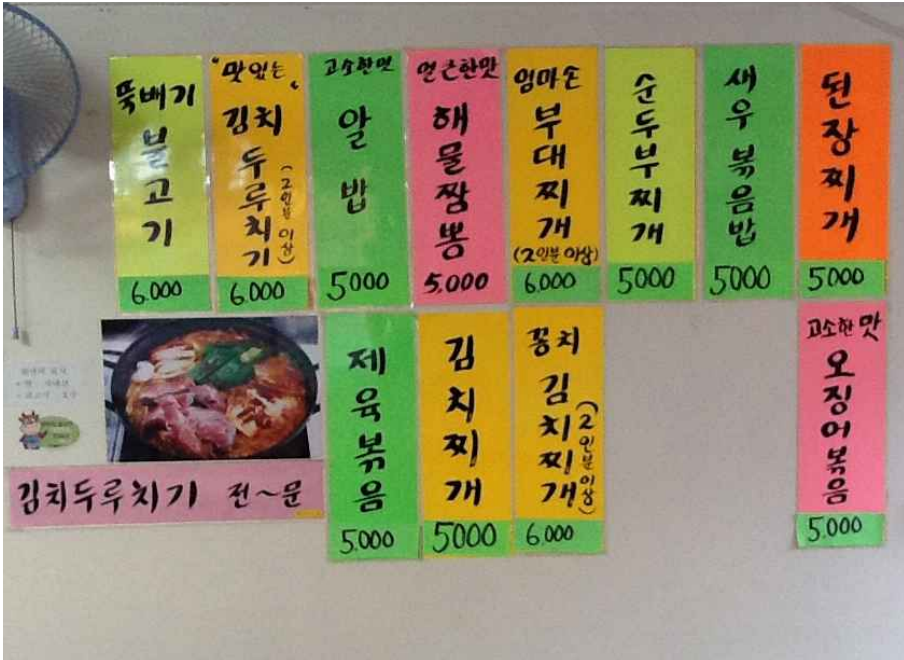 뚝배기 불고기
6.000
"맛있는"
김치 두루치기
(2인분 이상)
6.000
고소한맛
알밥
5000
얼큰한맛
해물짬뽕
5,000
엄마손
부대찌개
(2인분 이상)
6.000
순두부찌개
5000
새우볶음밥
5000
된장찌개
5.000
김치두루치기 전~문
제육볶음
5.000
김치찌개
5000
꽁치 김치찌개
(2인분이상)
6.000
고소한 맛
오징어볶음
5.000